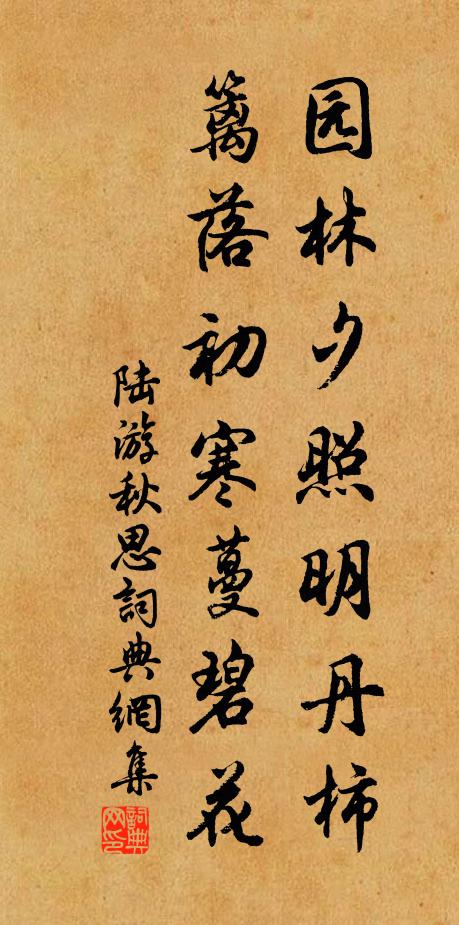 园林夕照明丹柿
篱落初寒蔓碧花
陆游秋思詞典網集
詞典网印